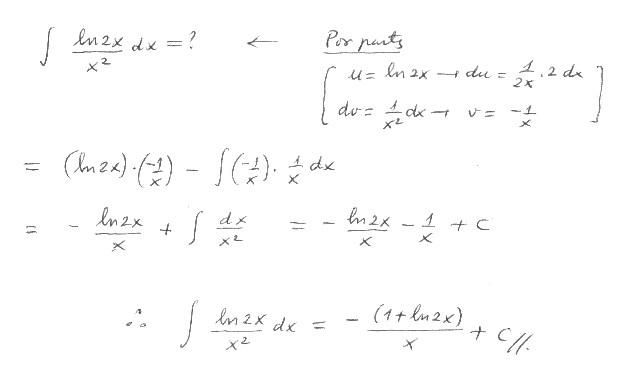 ∫ ln2x/x² dx = ? ← Por parts
[ u = ln 2x → du = 1/2x . 2 dx
dv = 1/x² dx → v = -1/x ]
= (ln 2x).(-1/x) - ∫(-1/x). 1/x dx
= - ln2x/x + ∫ dx/x² = - ln2x/x - 1/x + C
∴ ∫ ln 2x/x² dx = - (1+ln2x)/x + C//.